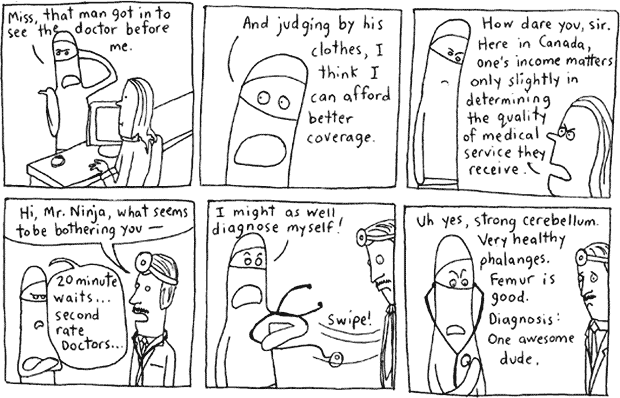 Miss, that man got in to
see the doctor before
me.
And judging by his
clothes, I
think I
can afford
better
coverage.
How dare you, sir.
Here in Canada,
one's income matters
only slightly in
determining
the quality
of medical
service they
receive.
Hi, Mr. Ninja, what seems
to be bothering you —
20 minute
waits...
second
rate
Doctors...
I might as well
diagnose myself!
Swipe!
Uh yes, strong cerebellum.
Very healthy
phalanges.
Femur is
good.
Diagnosis:
One awesome
dude.